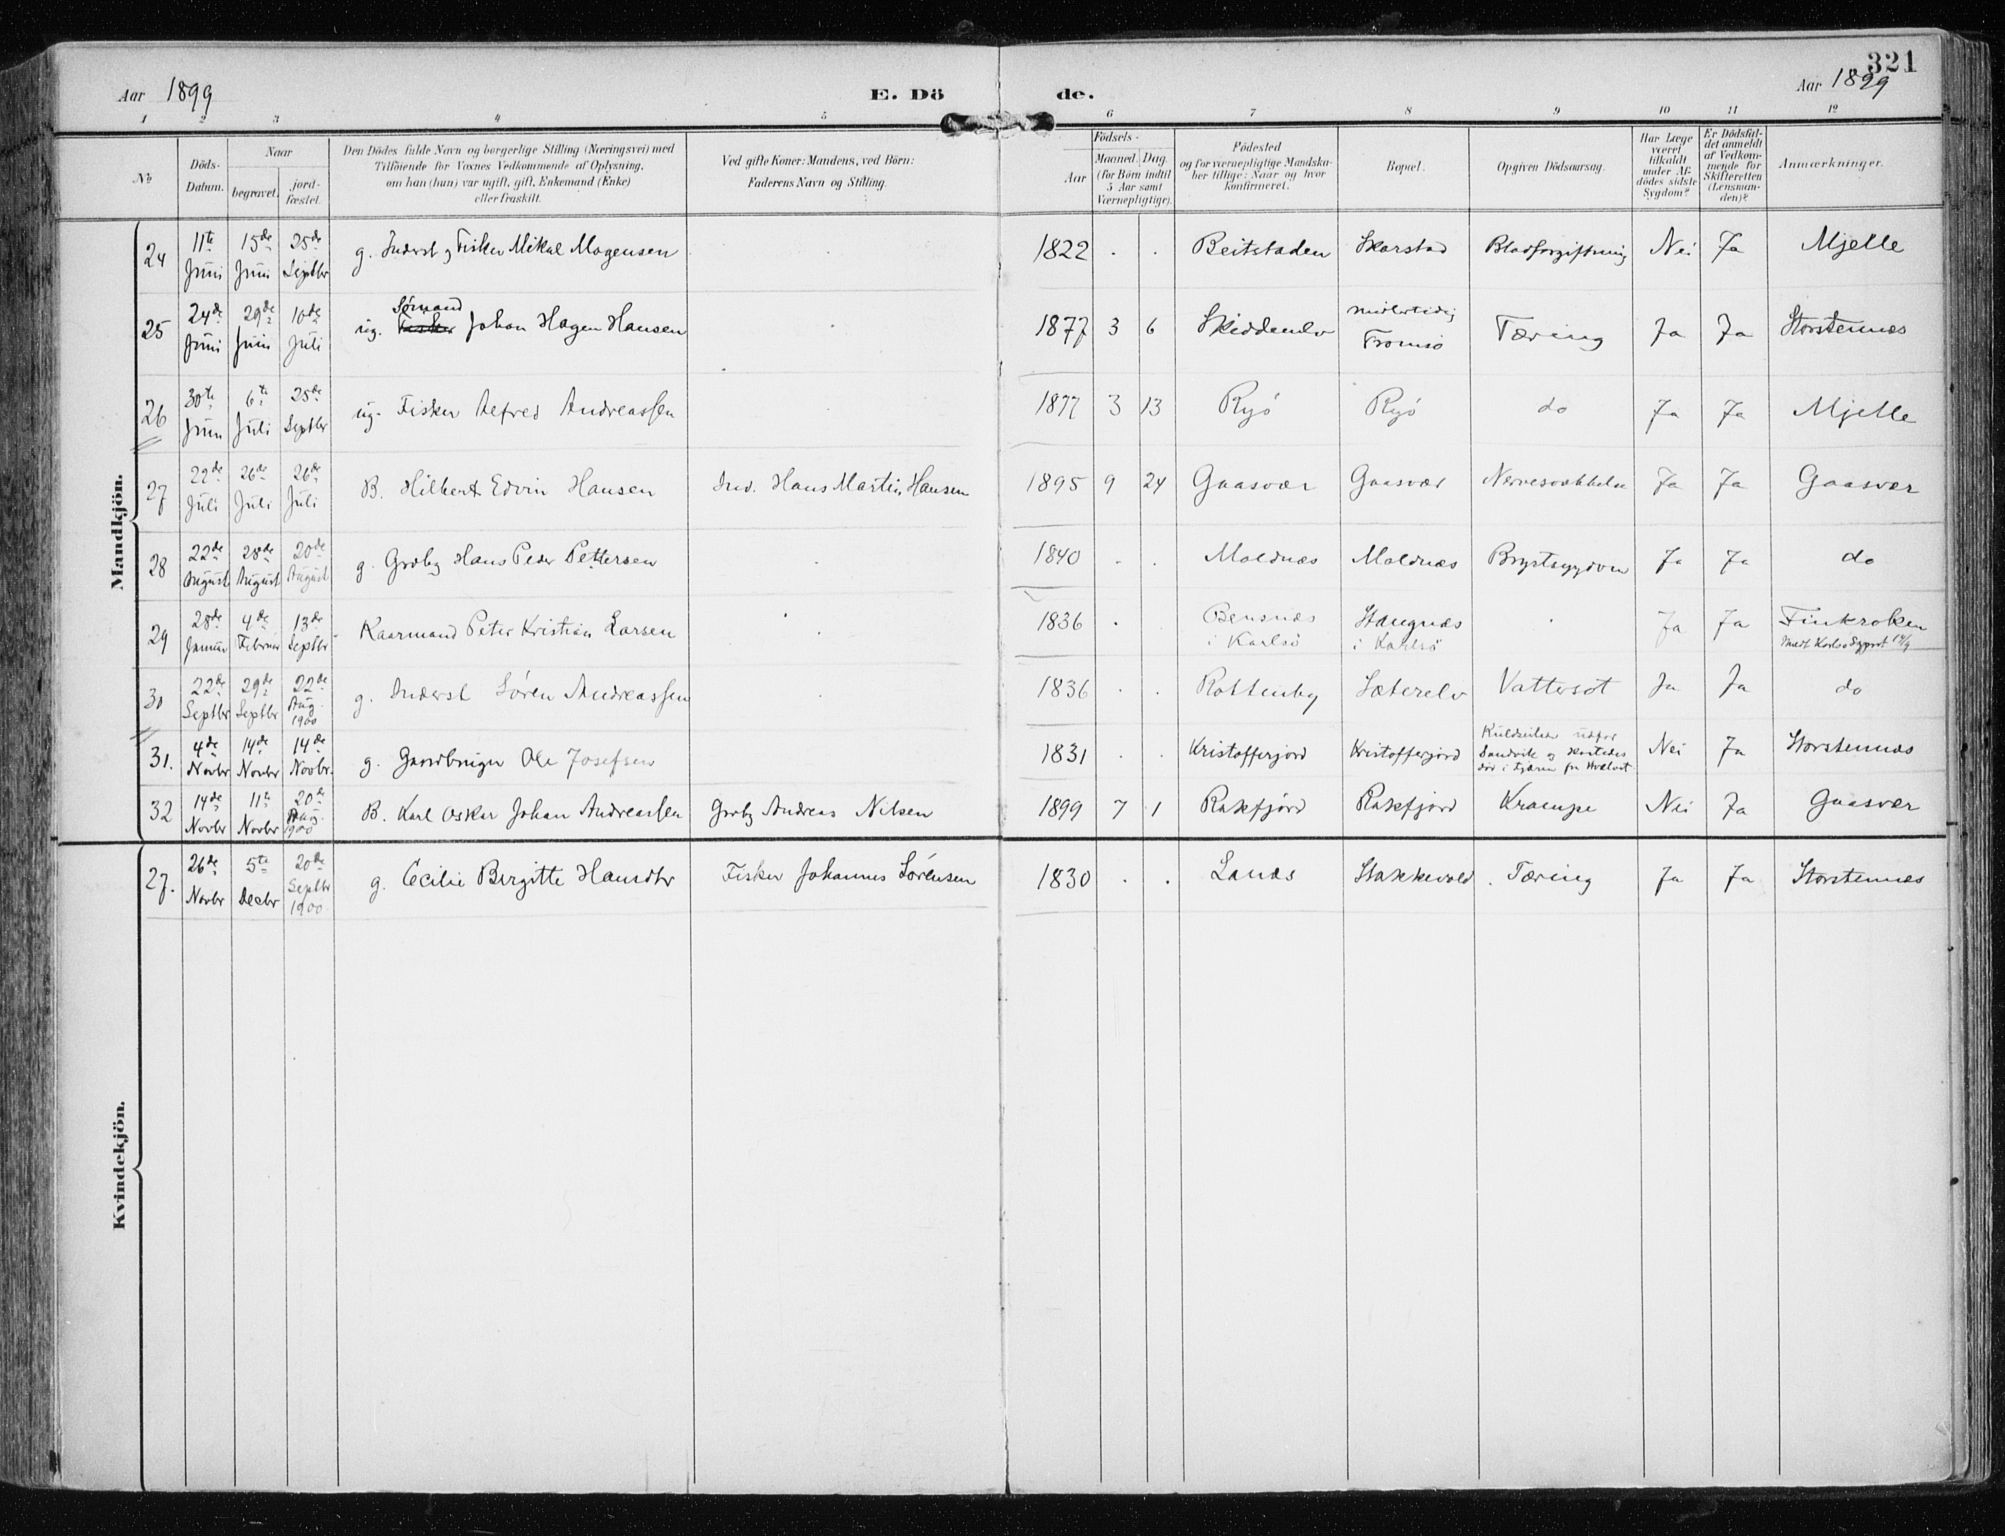 321
Aar 1899
E. Dö de.
Aar 1899
1 2 3 4 5 6 7 8 9 10 11 12
№
Döds-
Datum.
Naar
begravet.
jord-
fæstet.
Den Dödes fulde Navn og borgerlige Stilling (Næringsvei) med
Tilföiende for Voxnes Vedkommende af Oplysning,
om han (hun) var ugift, gift, Enkemand (Enke)
eller fraskilt.
Ved gifte Koner: Mandens, ved Börn:
Faderens Navn og Stilling.
Födsels-
Aar
Maaned. Dag.
(for Börn indtil
5 Aar samt
Værnepligtige).
Födested
og for værnepligtige Mandska-
ber tillige: Naar og hvor
konfirmeret.
Bopæl.
Opgiven Dödsaarsag.
Har Læge
været
tilkaldt
under Af-
dödes sidste
Sygdom?
Er Dödsfal-
det anmeldt
af Vedkom-
mende for
Skifteretten
(Lensman-
den)?
Anmærkninger.
Mandkjön.
24 11te Juni 15de Juni 25de Septbr g. Inderst og Fisker Mikal Mogensen 1822 . . Beitstaden Skarstad Blodforgiftning Nei Ja Mjelle
25 24de Juni 29de Juni 10de Juli ug. Sømand Fisker Johan Hagen Hansen 1877 3 6 Skiddenelv midlertidig Tromsö Tæring Ja Ja Storstennæs
26 30te Juni 6te Juli 25de Septbr ug. Fisker Alfred Andreassen 1877 3 13 Ryö Ryö do Ja Ja Mjelle
27 22de Juli 26de Juli 26de Juli B. Hilbert Edvin Hansen Ind. Hans Martin Hansen 1895 9 24 Gaasvær Gaasvær Nervesvækkelse Ja Ja Gaasvær
28 22de August 28de August 20de August g. Grdbg Hans Peder Pettersen 1840 . . Moldnæs Moldnæs Brystsygdom Ja Ja do
29 28de Januar 4de Februar 13de Septbr Kaarmand Peter Kristian Larsen 1836 . . Bensnæs i Karlsö Stangnæs i Karlsö . Ja Ja Finkroken
30 22de Septbr 29de Septbr 22de Aug. 1900 g. Inderst Sören Andreassen 1836 . . Rottenby Sæterelv Vattersot Ja Ja do
31. 4de Novbr 14de Novbr 14de Novbr. g. Gaardbruger Ole Josefsen 1831 . . Kristofferjord Kristofferjord Nei Ja Storstennæs
32 14de Novbr 11te Novbr 20de Aug. 1900 B. Karl Oskar Johan Andreassen Grdbg Andreas Nilsen 1899 7 1 Rakfjord Rakfjord Krampe Nei Ja Gaasvær
Kvindekjön.
27. 26de Novbr 5te Decbr 20de Septbr 1900 g. Cecilie Birgitte Hansdtr Fisker Johannes Sörensen 1830 . . Lanæs Stakkevold . Tæring Ja Ja Storstennæs